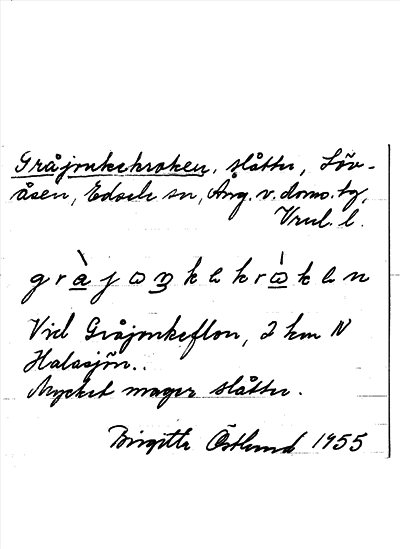 Gråjonkekroken, slåtter, Löv-
åsen, Edsele sn, Ång. v. doms. tg,
l.
gràjωnkekrὼken
Vid Gråjonkeflon, 2 km N
Halasjön..
Mycket mager slåtter.
Birgitta Östlund 1955